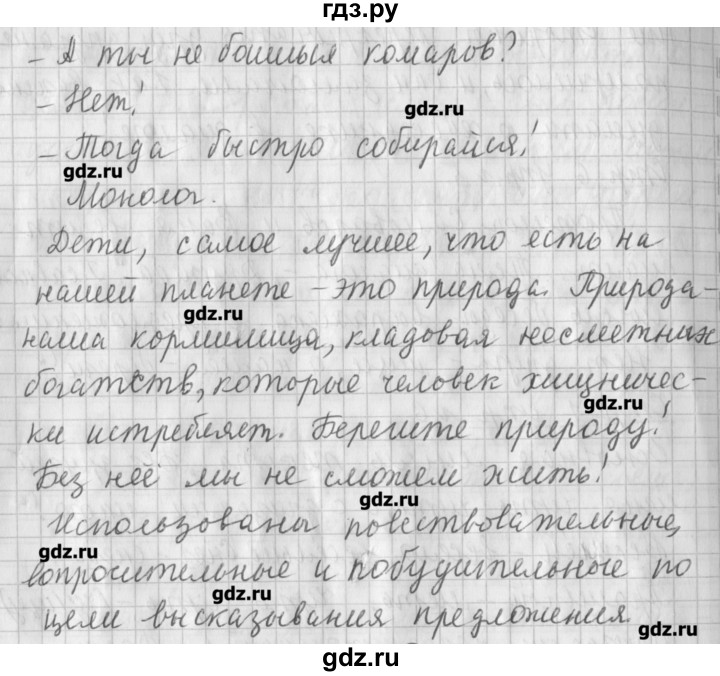 гдз.ру
- А ты не боишься комаров?
- Нет!
gdz.ru
- Тогда быстро собирайся!
gdz.ru
Монолог.
Дети, самое лучшее, что есть на
нашей планете - это природа. Природа-
gdz.ru
наша кормилица, кладовая несметных
богатств, которые человек хищничес-
gdz.ru
ки истребляет. Берегите природу!
Без неё мы не сможем жить!
gdz.ru
Использованы повествовательные,
gdz.ru
вопросительные и побудительные по
gdz.ru
цели высказывания предложения.
gdz.ru
gdz.ru